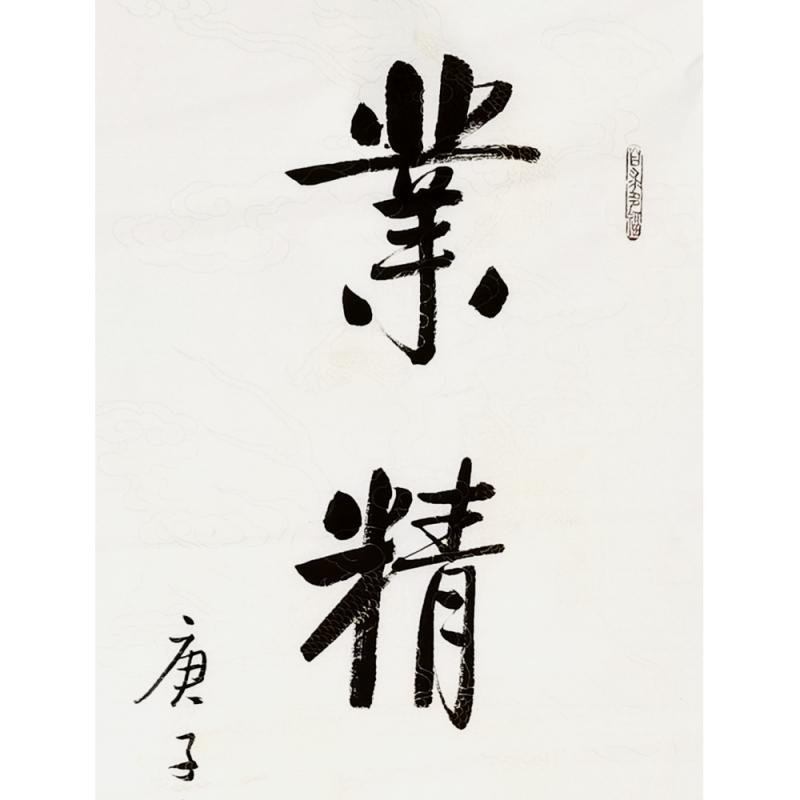 業精
庚子